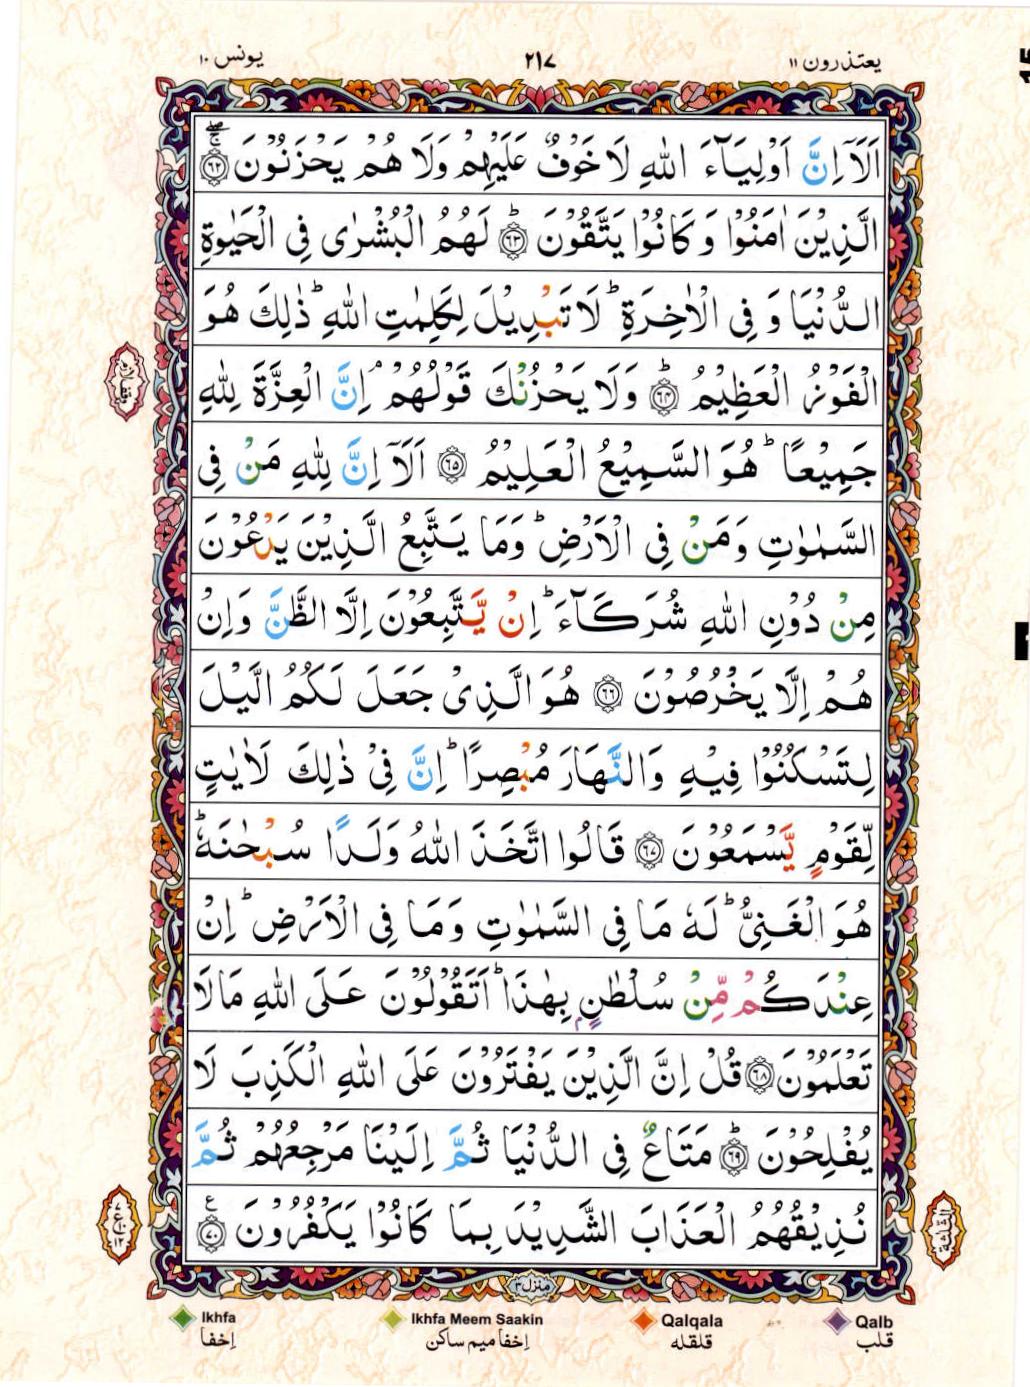 یعتذرون ۱۱
۲۱۷
یونس ۱۰
اَلَاۤ اِنَّ اَوْلِیَآءَ اللّٰهِ لَا خَوْفٌ عَلَیْهِمْ وَلَا هُمْ یَحْزَنُوْنَ ۶۲
الَّذِیْنَ اٰمَنُوْا وَ كَانُوْا یَتَّقُوْنَ ؕ۶۳ لَهُمُ الْبُشْرٰی فِی الْحَیٰوةِ
الدُّنْیَا وَ فِی الْاٰخِرَةِ ؕ لَا تَبْدِیْلَ لِكَلِمٰتِ اللّٰهِ ؕ ذٰلِكَ هُوَ
الْفَوْزُ الْعَظِیْمُ ؕ۶۴ وَلَا یَحْزُنْكَ قَوْلُهُمْ ۘ اِنَّ الْعِزَّةَ لِلّٰهِ
جَمِیْعًا ؕ هُوَ السَّمِیْعُ الْعَلِیْمُ ۶۵ اَلَاۤ اِنَّ لِلّٰهِ مَنْ فِی
السَّمٰوٰتِ وَمَنْ فِی الْاَرْضِ ؕ وَمَا یَتَّبِعُ الَّذِیْنَ یَدْعُوْنَ
مِنْ دُوْنِ اللّٰهِ شُرَكَآءَ ؕ اِنْ یَّتَّبِعُوْنَ اِلَّا الظَّنَّ وَاِنْ
هُمْ اِلَّا یَخْرُصُوْنَ ۶۶ هُوَ الَّذِیْ جَعَلَ لَكُمُ الَّیْلَ
لِتَسْكُنُوْا فِیْهِ وَالنَّهَارَ مُبْصِرًا ؕ اِنَّ فِیْ ذٰلِكَ لَاٰیٰتٍ
لِّقَوْمٍ یَّسْمَعُوْنَ ۶۷ قَالُوا اتَّخَذَ اللّٰهُ وَلَدًا سُبْحٰنَهٗ ؕ
هُوَ الْغَنِیُّ ؕ لَهٗ مَا فِی السَّمٰوٰتِ وَمَا فِی الْاَرْضِ ؕ اِنْ
عِنْدَكُمْ مِّنْ سُلْطٰنٍۭ بِهٰذَا ؕ اَتَقُوْلُوْنَ عَلَی اللّٰهِ مَالَا
تَعْلَمُوْنَ ۶۸ قُلْ اِنَّ الَّذِیْنَ یَفْتَرُوْنَ عَلَی اللّٰهِ الْكَذِبَ لَا
یُفْلِحُوْنَ ؕ۶۹ مَتَاعٌ فِی الدُّنْیَا ثُمَّ اِلَیْنَا مَرْجِعُهُمْ ثُمَّ
نُذِیْقُهُمُ الْعَذَابَ الشَّدِیْدَ بِمَا كَانُوْا یَكْفُرُوْنَ ۷۰ ع
منزل ۳
الثلثة
Ikhfa
اِخفا
Ikhfa Meem Saakin
اِخفا میم ساکن
Qalqala
قلقله
Qalb
قلب